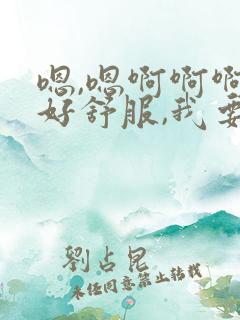 嗯,嗯啊啊啊
好舒服,我要
劉占昆
未经同意禁止转载